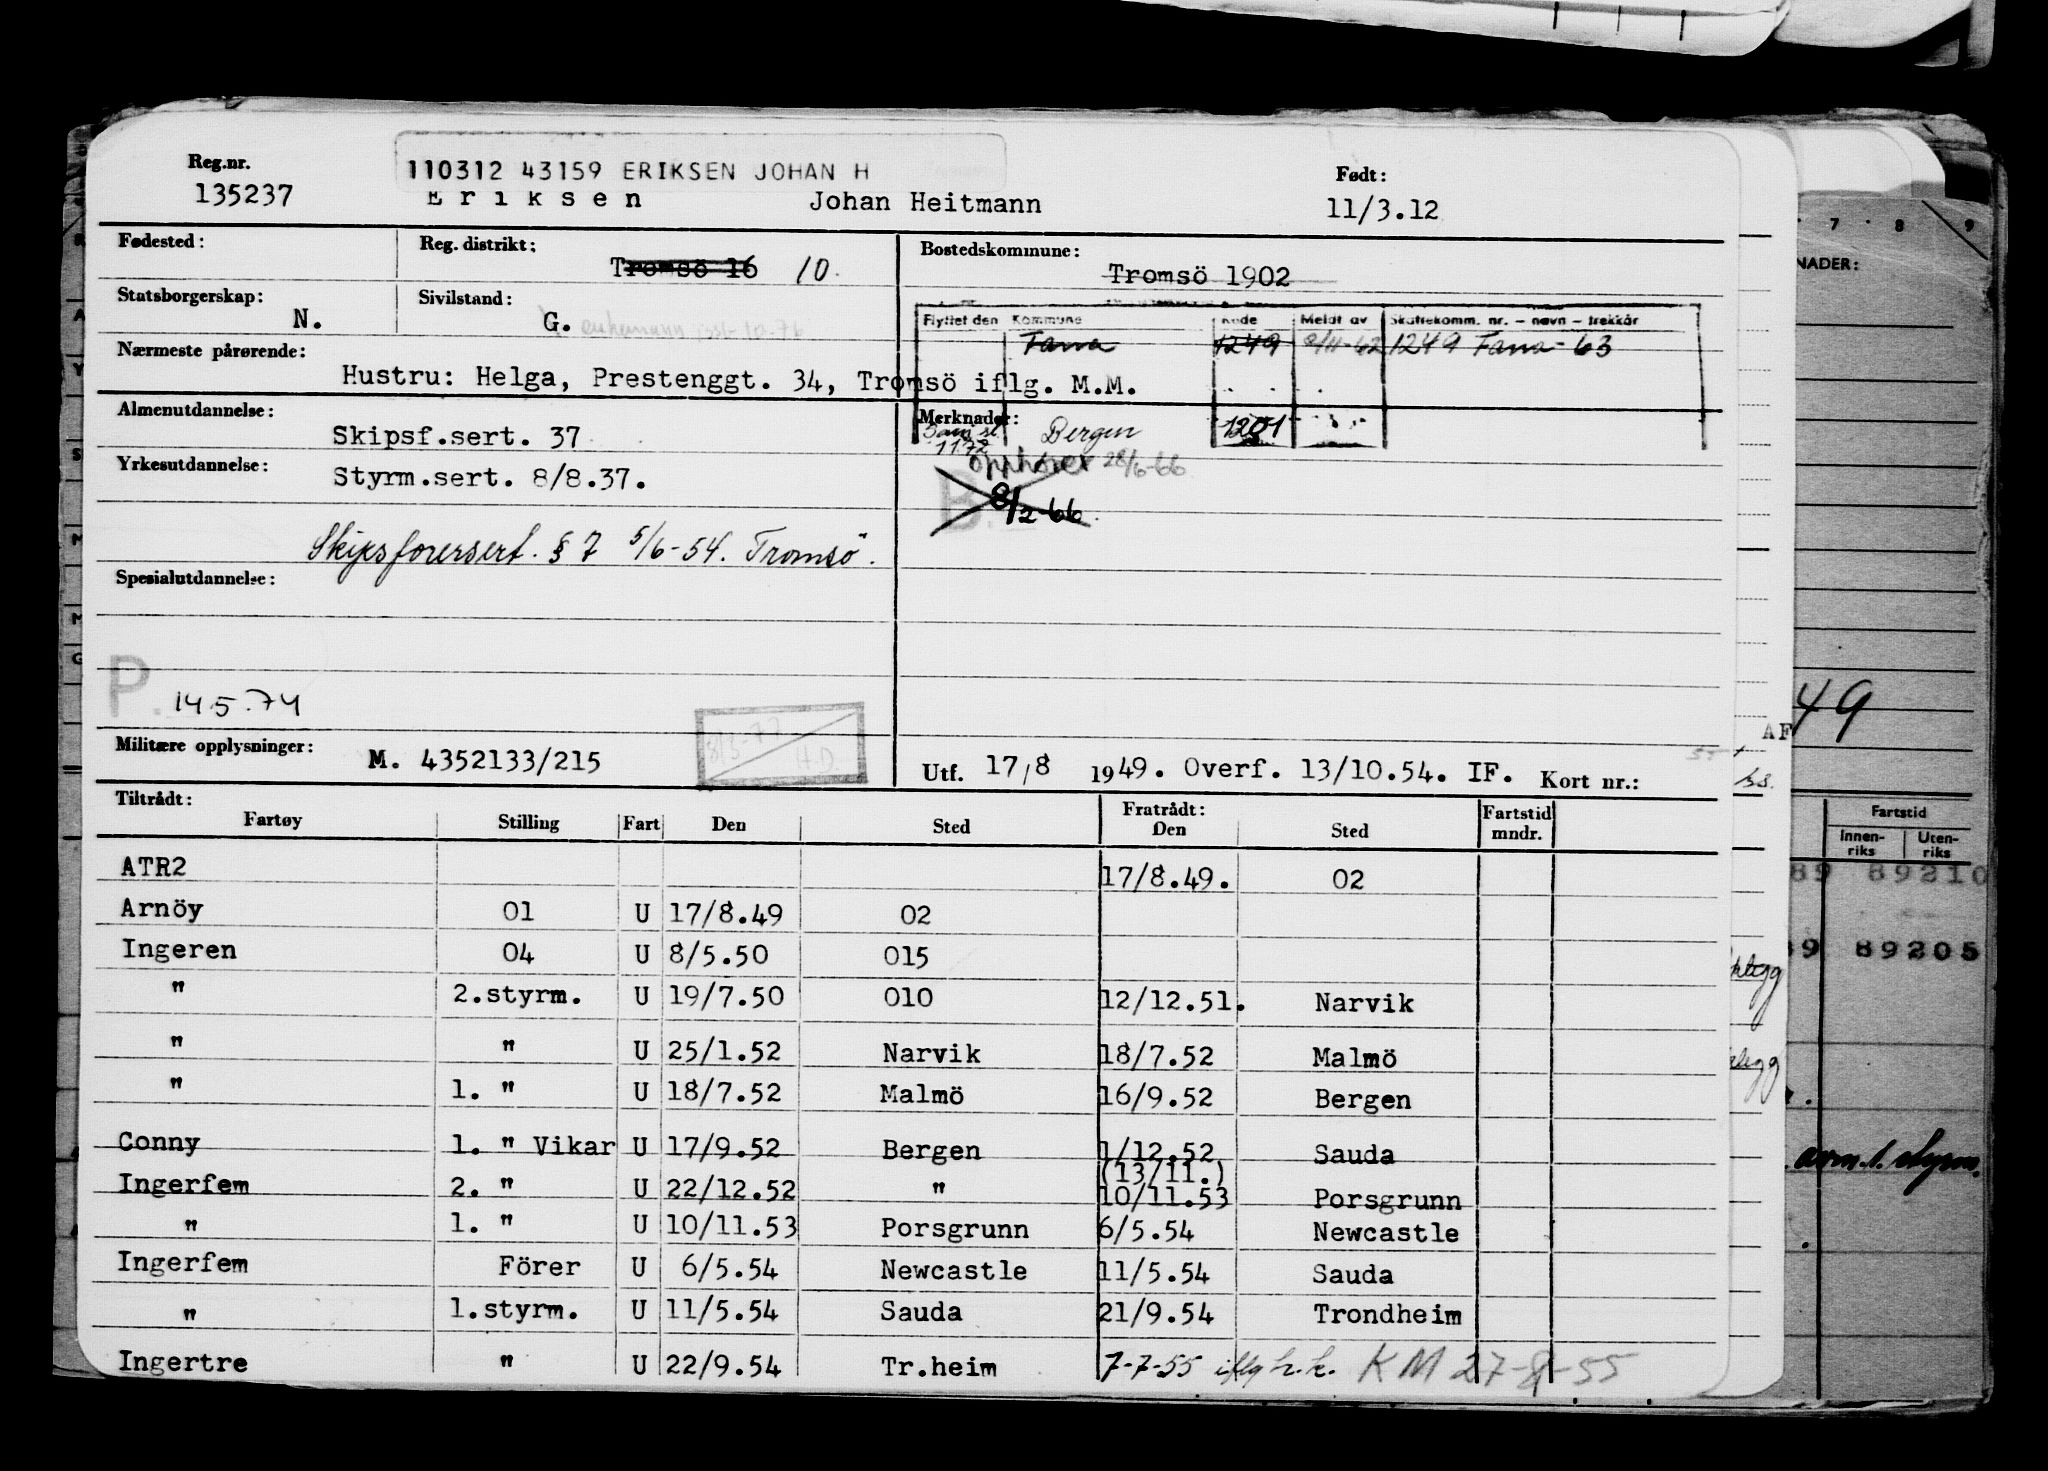 Reg.nr.
135237
110312 43159 ERIKSEN JOHAN H
Eriksen Johan Heitmann
Født:
11/3.12
Fødested:
Reg. distrikt:
Tromsö 16 10.
Bostedskommune:
Tromsö 1902
Statsborgerskap:
N.
Sivilstand:
G.
enkemann
Flyttet den Kommune Kode Meldt av Skattekomm. nr. – navn – trekkår
Fana 1249 9/11-62 1249 Fana - 63
Nærmeste pårørende:
Hustru: Helga, Prestenggt. 34, Tromsö iflg. M.M.
Almenutdannelse:
Skipsf.sert. 37
Merknader:
Bergen 1201
1172
Opphører 28/6-66
Yrkesutdannelse:
Styrm.sert. 8/8.37.
B.
8/2-66.
Skipsförersert. § 7 5/6-54. Tromsö.
Spesialutdannelse:
P.
14.5.74
8/3-77
H.D.
Militære opplysninger:
M. 4352133/215
Utf. 17/8 1949. Overf. 13/10.54. IF. Kort nr.:
Tiltrådt:
Fartøy Stilling Fart Den Sted
Fratrådt:
Den Sted
Fartstid
mndr.
ATR2 17/8.49. 02
Arnöy 01 U 17/8.49 02
Ingeren 04 U 8/5.50 015
" 2.styrm. U 19/7.50 010 12/12.51. Narvik
" " U 25/1.52 Narvik 18/7.52 Malmö
" 1. " U 18/7.52 Malmö 16/9.52 Bergen
Conny 1. " Vikar U 17/9.52 Bergen 1/12.52 Sauda
(13/11.)
Ingerfem 2. " U 22/12.52 " 10/11.53 Porsgrunn
" 1. " U 10/11.53 Porsgrunn 6/5.54 Newcastle
Ingerfem Förer U 6/5.54 Newcastle 11/5.54 Sauda
" 1.styrm. U 11/5.54 Sauda 21/9.54 Trondheim
Ingertre " U 22/9.54 Tr.heim 7-7-55 iflg h.k. KM 27-8-55
7 8 9
NADER:
49
AF
Fartstid
Innen-
riks
Uten-
riks
89 89210
89 89205